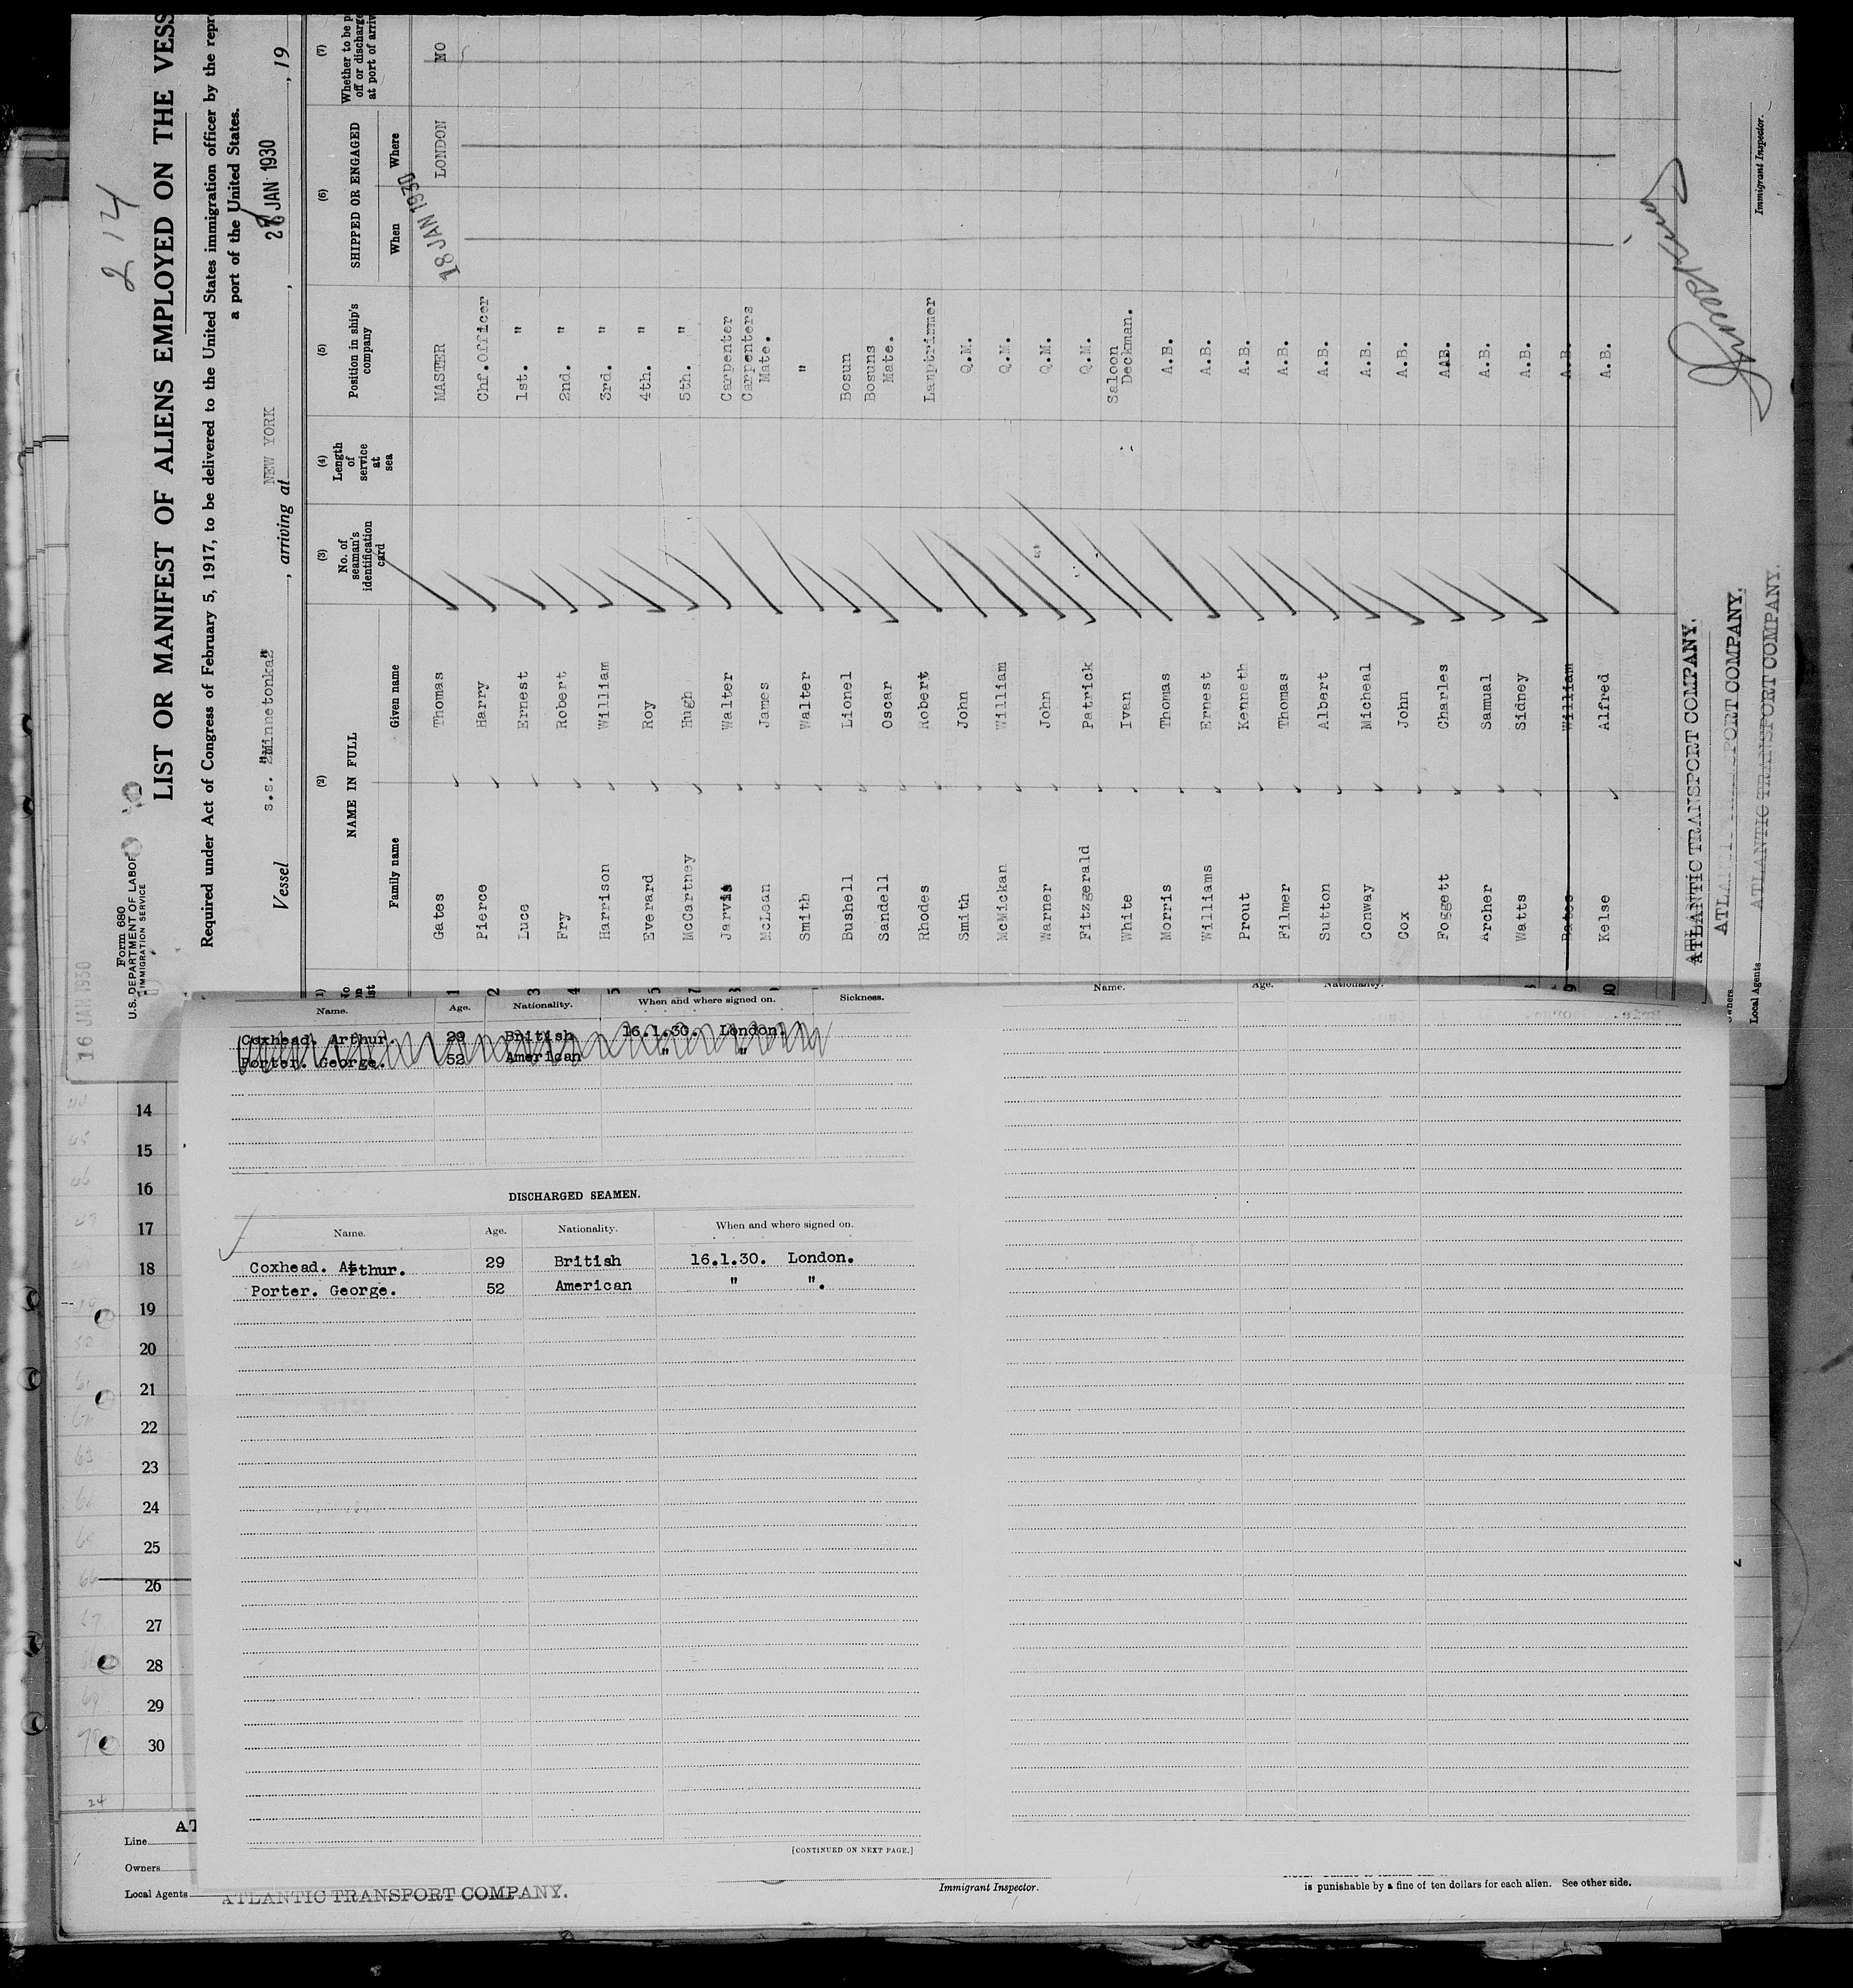 16 JAN 1930
Form 680
U.S. DEPARTMENT OF LABOR
IMMIGRATION SERVICE
214
LIST OR MANIFEST OF ALIENS EMPLOYED ON THE VESS
Required under Act of Congress of February 5, 1917, to be delivered to the United States immigration officer by the repr
a port of the United States.
Vessel s.s. "Minnetonka" , arriving at NEW YORK , 28 JAN 1930 , 19
(2) (3) (4) (5) (6) (7)
NAME IN FULL
Family name Given name
No. of seaman's identification card
Length of service at sea
Position in ship's company
SHIPPED OR ENGAGED
When Where
Whether to be p
off or discharge
at port of arriv
1 Gates Thomas MASTER 18 JAN 1930 LONDON NO
2 Pierce Harry Chr.Officer
3 Luce Ernest 1st. "
4 Fry Robert 2nd. "
5 Harrison William 3rd. "
Everard Roy 4th. "
7 McCartney Hugh 5th. "
Jarvis Walter Carpenter
McLean James Carpenters Mate.
Smith Walter "
Bushell Lionel Bosun
Sandell Oscar Bosuns Mate.
Rhodes Robert Lamptrimmer
Smith John Q.M.
McMickan William Q.M.
Warner John Q.M.
Fitzgerald Patrick Q.M.
White Ivan Saloon Deckman.
Morris Thomas A.B.
Williams Ernest A.B.
Prout Kenneth A.B.
Filmer Thomas A.B.
Sutton Albert A.B.
Conway Micheal A.B.
Cox John A.B.
Foggett Charles AAB.
Archer Samual A.B.
Watts Sidney A.B.
9 Bates William A.B.
30 Kelse Alfred A.B.
ATLANTIC TRANSPORT COMPANY.
ATLANTIC TRANSPORT COMPANY.
Local Agents ATLANTIC TRANSPORT COMPANY.
Immigrant Inspector.
Name. Age. Nationality. When and where signed on. Sickness.
Coxhead. Arthur. 29 British 16.1.30. London.
Porter. George. 52 American " "
DISCHARGED SEAMEN.
Name. Age. Nationality. When and where signed on.
Coxhead. Arthur. 29 British 16.1.30. London.
Porter. George. 52 American " ".
[CONTINUED ON NEXT PAGE.]
Name. Age. Nationality.
14
15
16
17
18
19
20
21
22
23
24
25
26
27
28
29
30
24
Line AT
Owners
Local Agents ATLANTIC TRANSPORT COMPANY.
Immigrant Inspector.
is punishable by a fine of ten dollars for each alien. See other side.